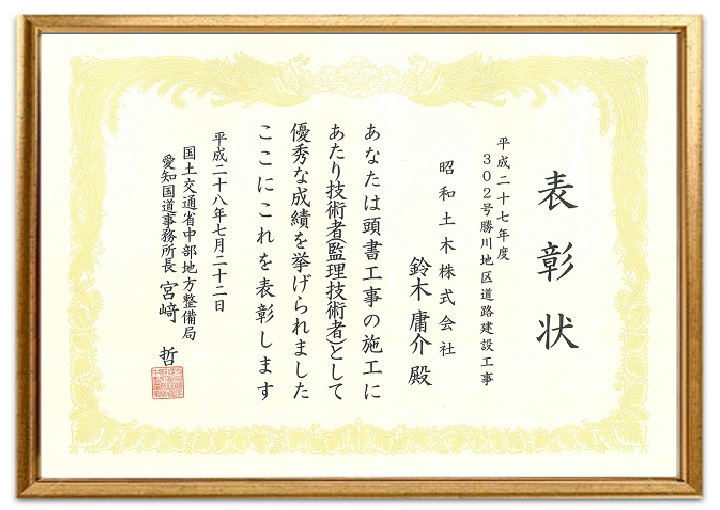 表彰状
平成二十七年度
302号勝川地区道路建設工事
昭和土木株式会社
鈴木庸介殿
あなたは頭書工事の施工に
あたり技術者(監理技術者)として
優秀な成績を挙げられました
ここにこれを表彰します
平成二十八年七月二十二日
国土交通省中部地方整備局
愛知国道事務所長 宮﨑 哲